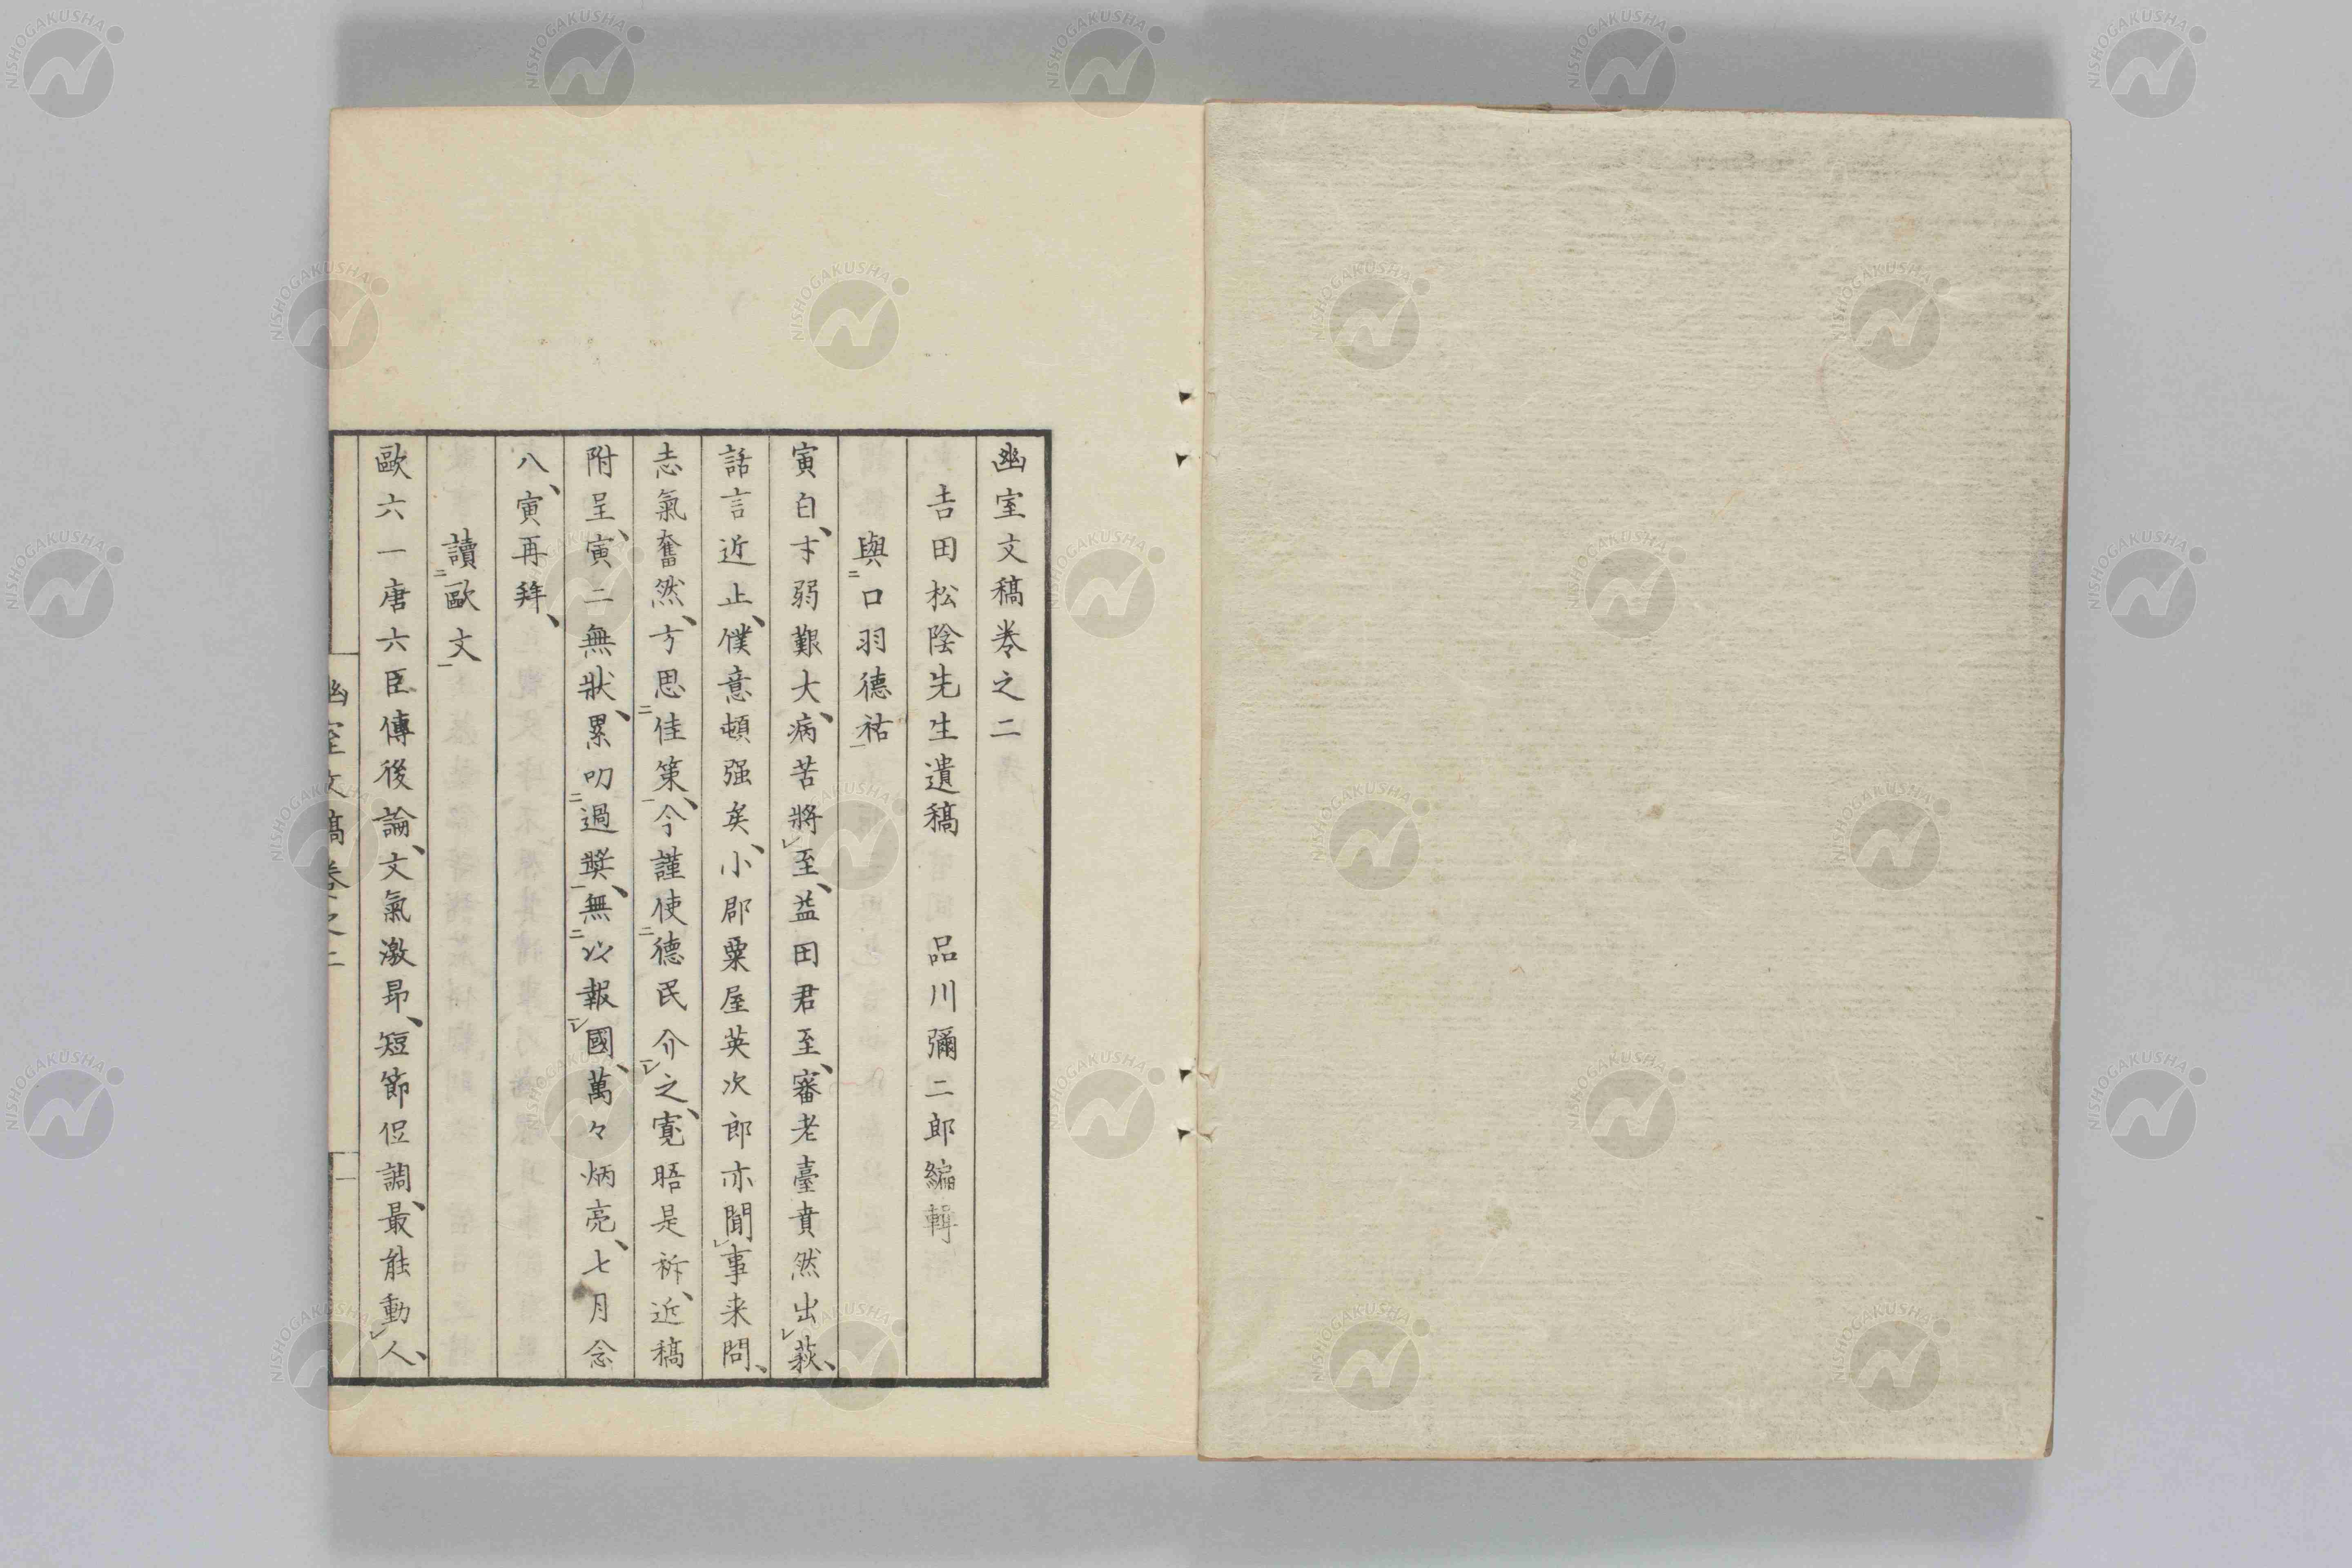 幽室文稿卷之二
吉田松陰先生遺稿　品川彌二郎編輯
與二口羽德祐一
寅白、才弱艱大、病苦將レ至、益田君至、審老臺賁然出レ萩、
話言近止、僕意頓强矣、小郡粟屋英次郎亦聞レ事来問、
志氣奮然、方思二佳策一、今謹使二德民介一レ之、寛晤是祈、近稿
附呈、寅二無狀、累叨二過奬一、無二以報一レ國、萬々炳亮、七月念
八、寅再拜、
讀二歐文一
歐六一唐六臣傳後論、文氣激昂、短節促調、最能動レ人、
幽室文稿卷之二
一
NISHOGAKUSHA